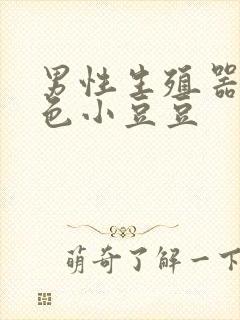 男性生殖器
色小豆豆
萌奇了解一下